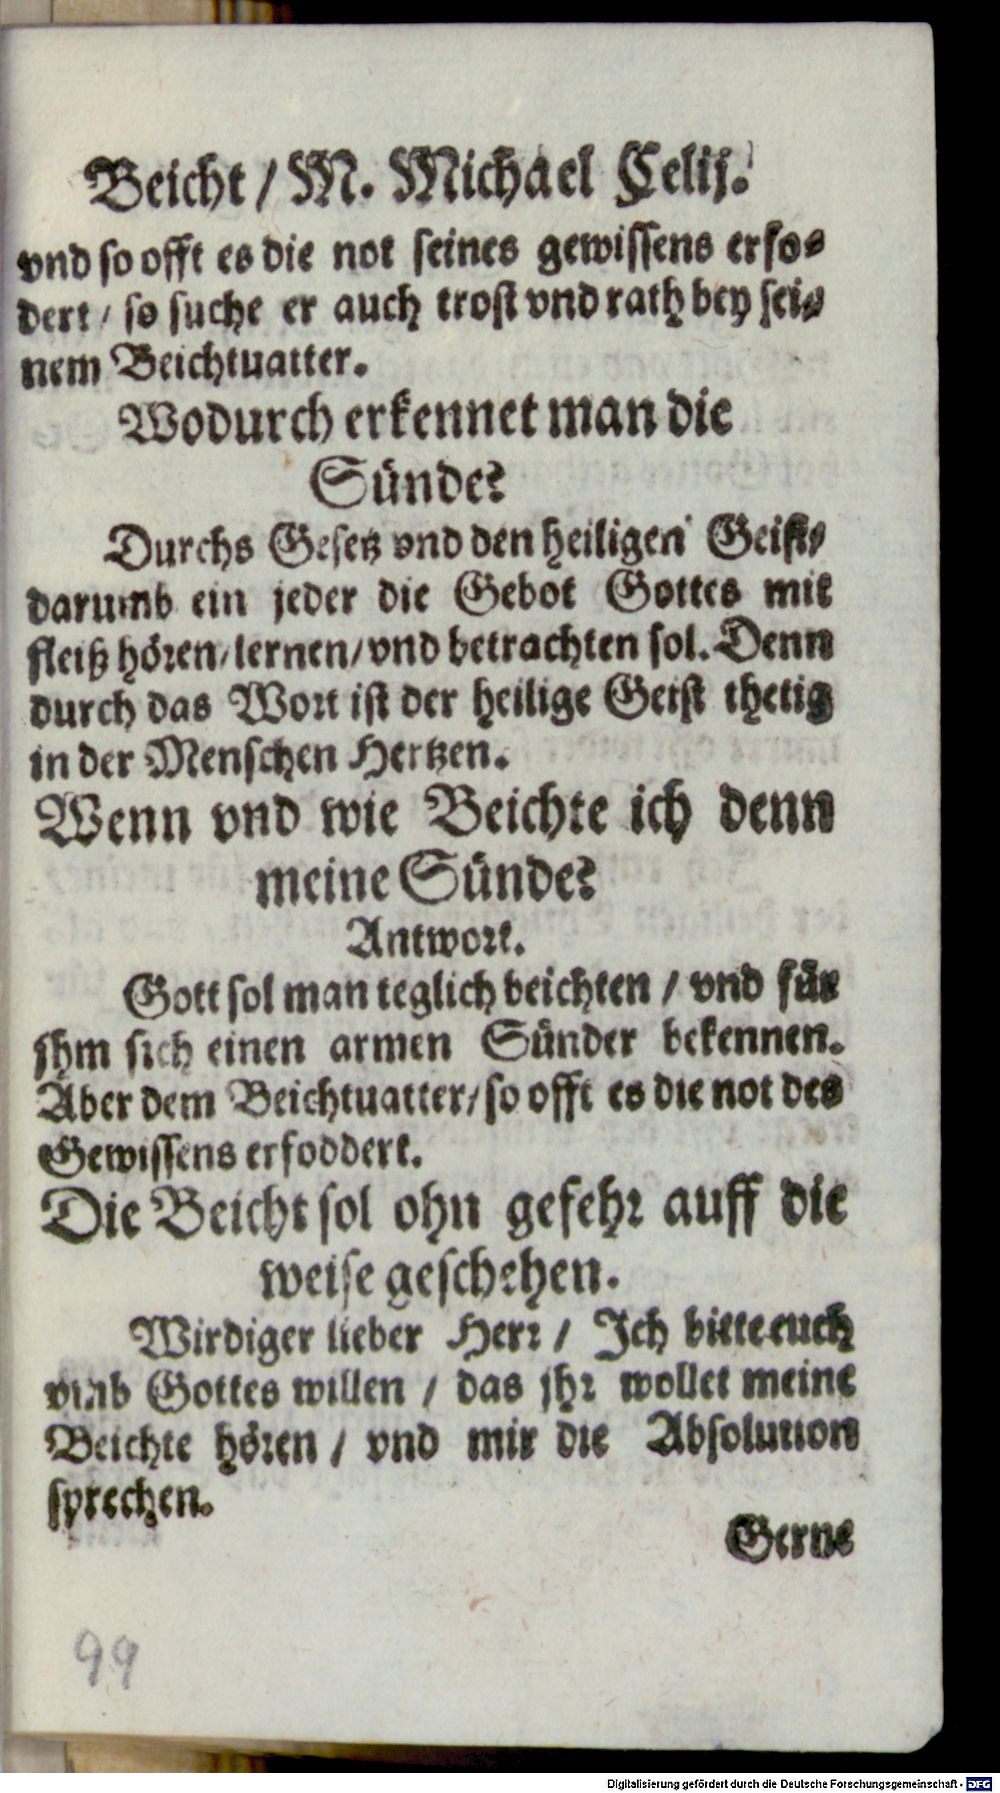 Beicht / M. Michael Celij.
vnd so offt es die not seines gewissens erfo⸗
dert / so suche er auch trost vnd rath bey sei⸗
nem Beichtuatter.
Wodurch erkennet man die
Sünde?
Durchs Gesetz vnd den heiligen Geist /
darumb ein jeder die Gebot Gottes mit
fleiß hören / lernen / vnd betrachten sol. Denn
durch das Wort ist der heilige Geist thetig
in der Menschen Hertzen.
Wenn vnd wie Beichte ich denn
meine Sünde?
Antwort.
Gott sol man teglich beichten / vnd für
jhm sich einen armen Sünder bekennen.
Aber dem Beichtuatter / so offt es die not des
Gewissens erfoddert.
Die Beicht sol ohn gefehr auff die
weise geschehen.
Wirdiger lieber Herr / Ich bitte euch
vmb Gottes willen / das jhr wollet meine
Beichte hören / vnd mir die Absolution
sprechen.
Gerne
99
Digitalisierung gefördert durch die Deutsche Forschungsgemeinschaft - DFG